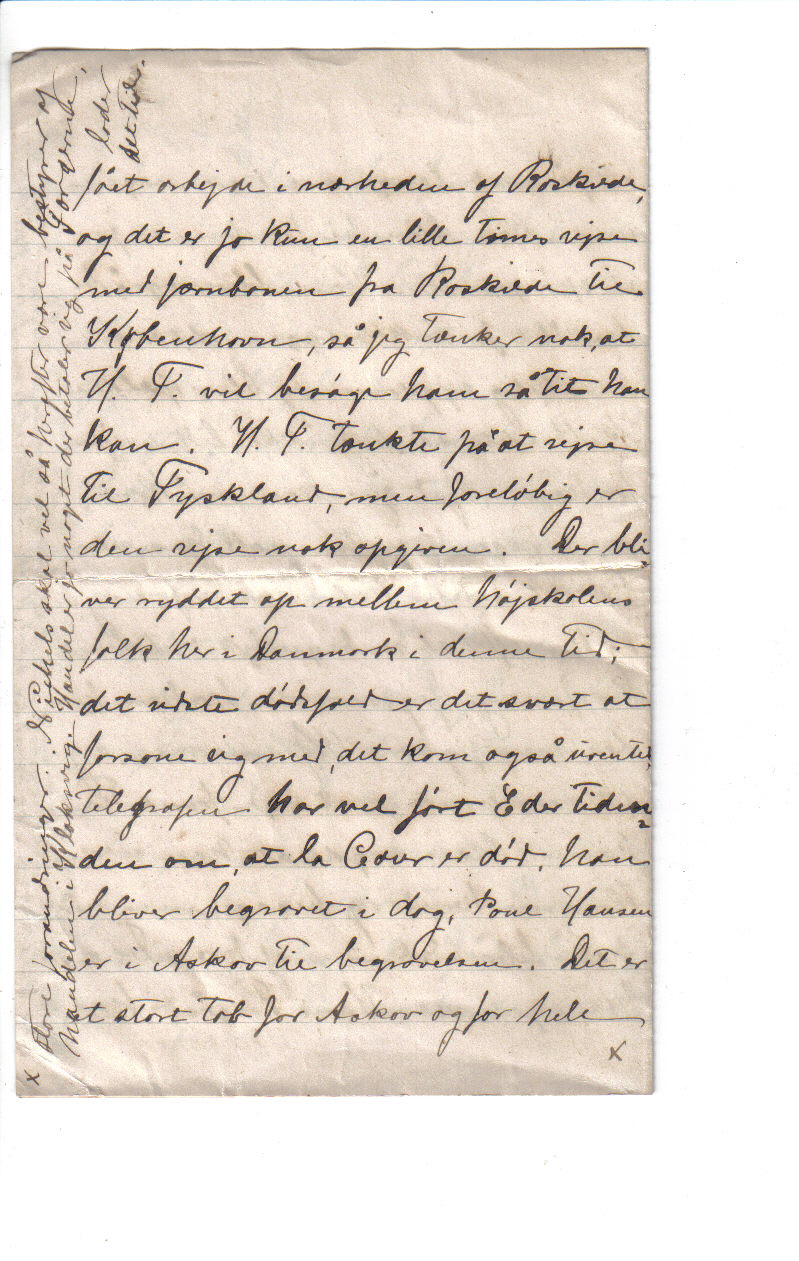 fået arbejde i nærheden af Roskilde,
og det er jo kun en lille times rejse
med jærnbanen fra Roskilde til
København, så jeg tænker nok, at
H. F. vil besøge ham så tit han
kan. H. F. tænkte på at rejse
til Tyskland, men foreløbig er
den rejse nok opgiven. Der bli-
ver ryddet op mellem højskolens
folk her i Danmark i denne tid;
det sidste dødsfald er det svært at
forsone sig med, det kom også uventet,
telegrafen har vel ført Eder tiden-
den om, at la Cour er død, han
bliver begravet i dag, Poul Hansen
er i Askov til begravelsen. Det er
et stort tab for Askov og for hele
x
x store forandringer. Nichels skal vel så herefter være bestyrer af
handelen i Klaksvig. Handel er jo noget der betaler sig på Færøerne,
lader
det til.